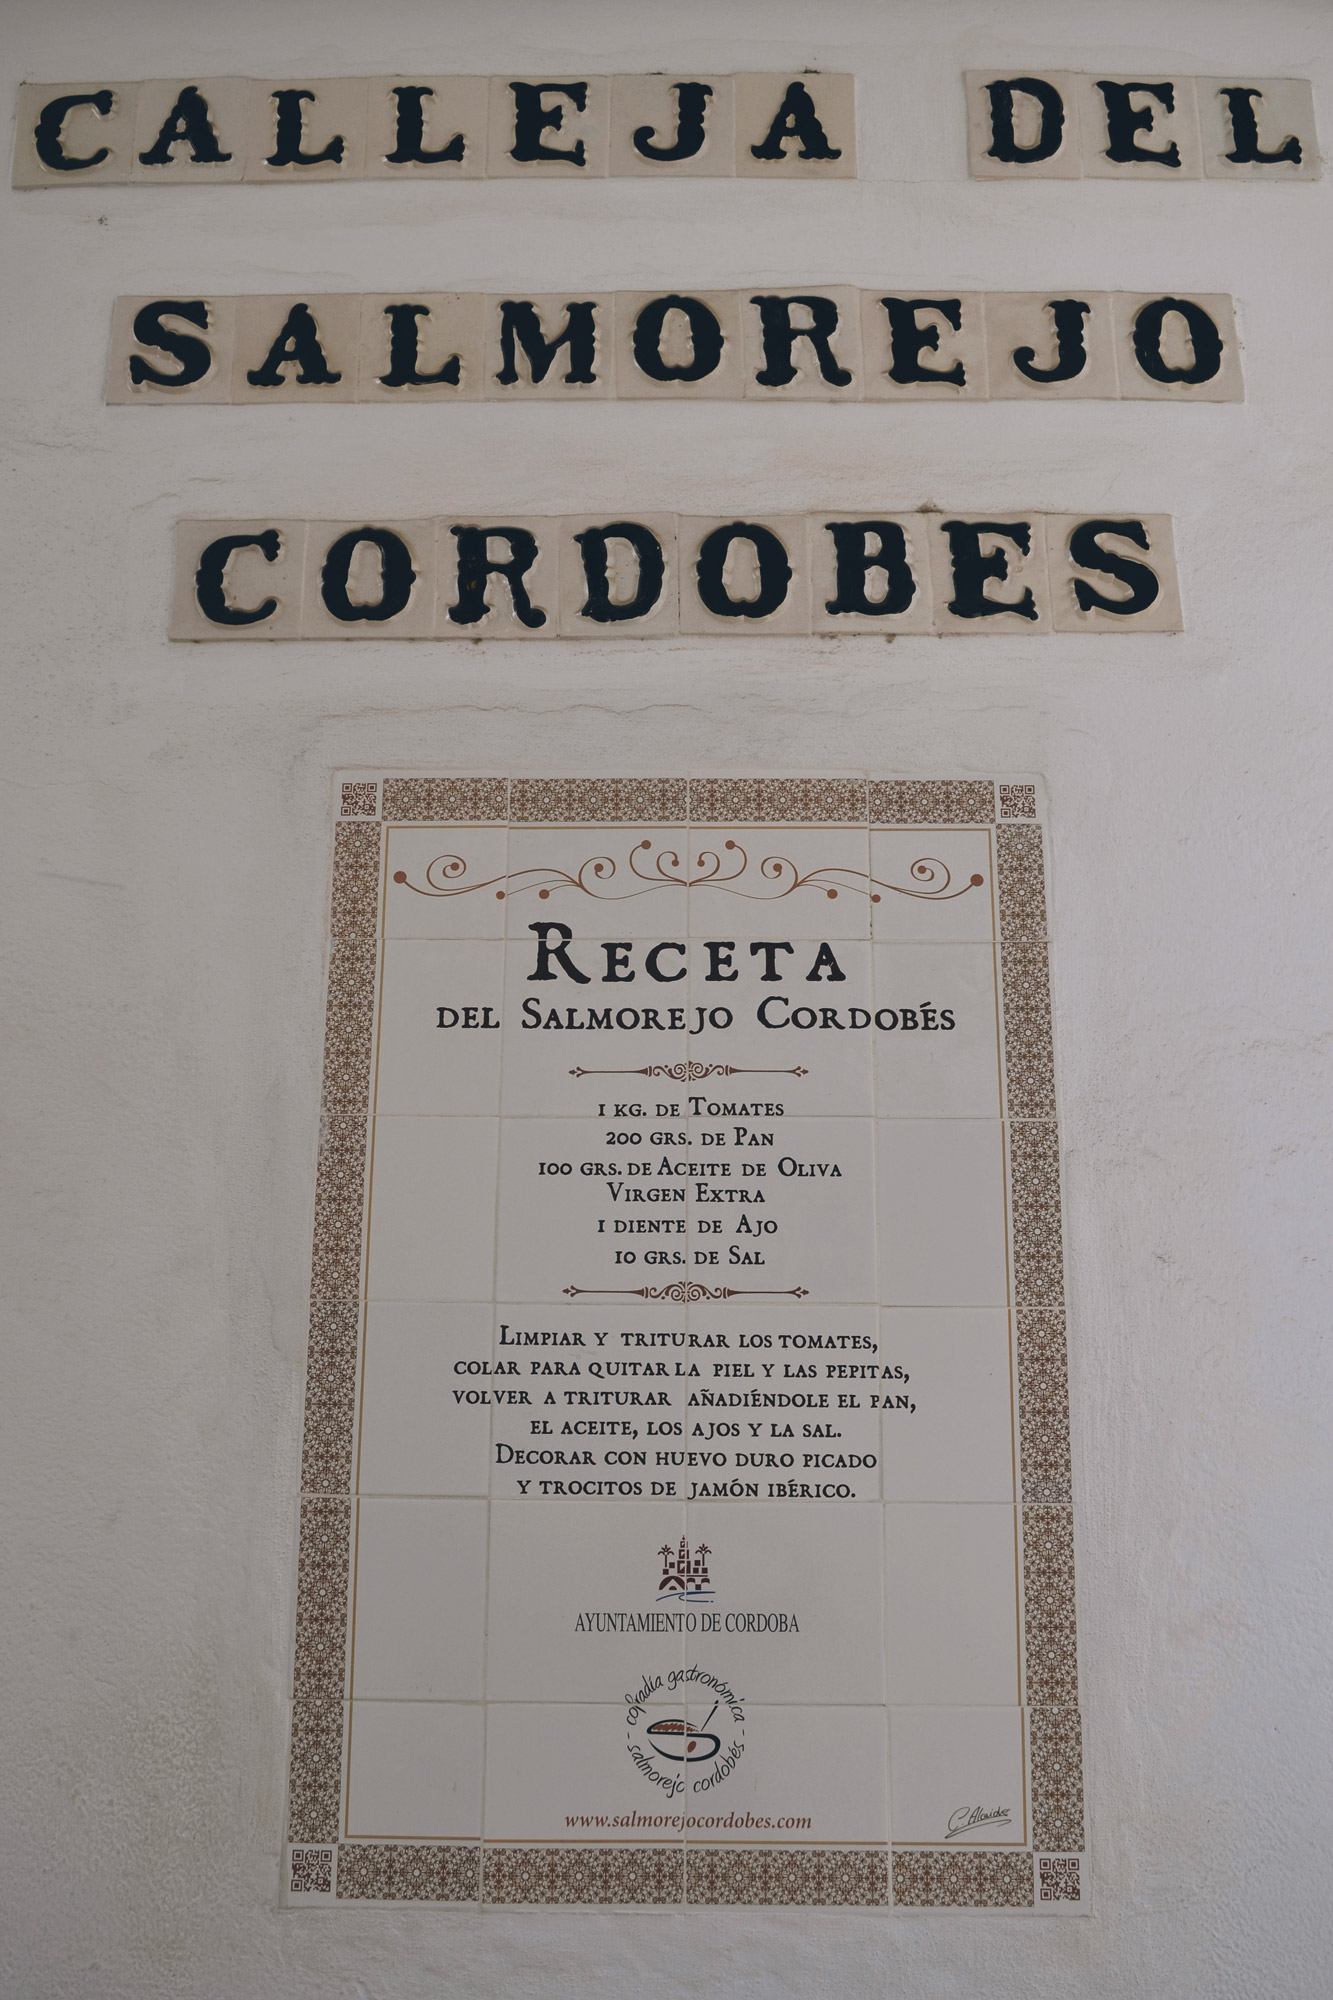 CALLEJA DEL
SALMOREJO
CORDOBES
RECETA
DEL SALMOREJO CORDOBÉS
1 KG. DE TOMATES
200 GRS. DE PAN
100 GRS. DE ACEITE DE OLIVA
VIRGEN EXTRA
1 DIENTE DE AJO
10 GRS. DE SAL
LIMPIAR Y TRITURAR LOS TOMATES,
COLAR PARA QUITAR LA PIEL Y LAS PEPITAS,
VOLVER A TRITURAR AÑADIÉNDOLE EL PAN,
EL ACEITE, LOS AJOS Y LA SAL.
DECORAR CON HUEVO DURO PICADO
Y TROCITOS DE JAMÓN IBÉRICO.
AYUNTAMIENTO DE CORDOBA
cofradía gastronómica
- salmorejo cordobés -
www.salmorejocordobes.com